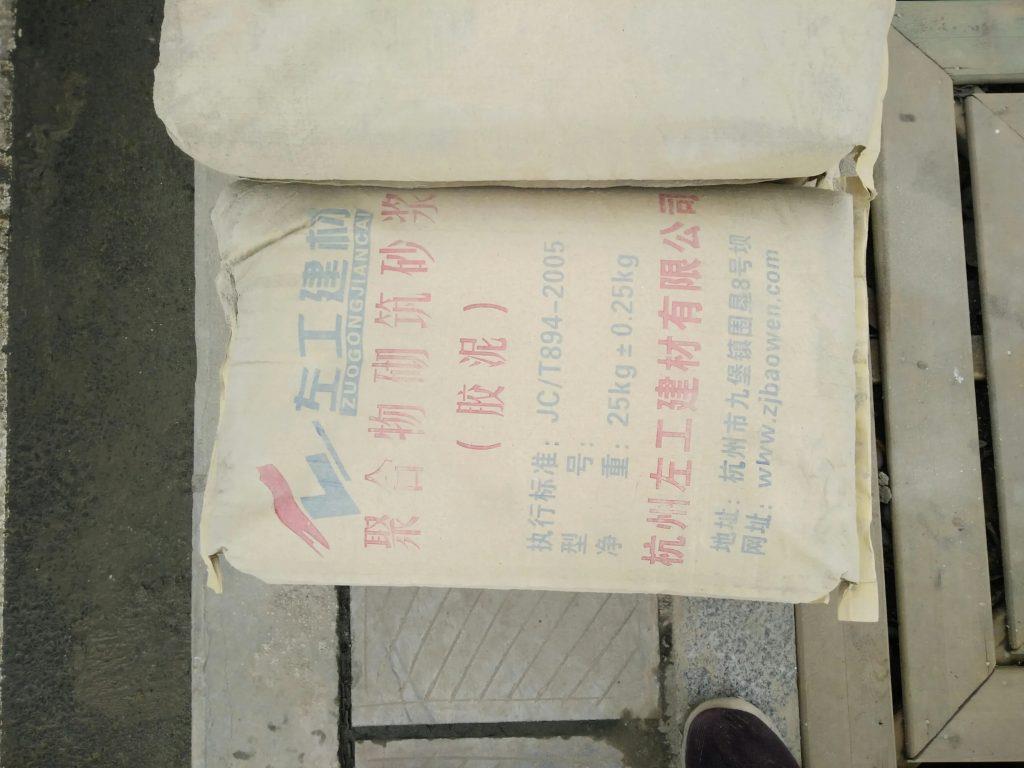 左工建材
ZUOGONGJIANCAI
聚合物砌筑砂浆
（胶泥）
执行标准：JC/T894-2005
型号：
净重：25kg±0.25kg
杭州左工建材有限公司
地址：杭州市九堡镇围垦8号坝
网址：www.zjbaowen.com